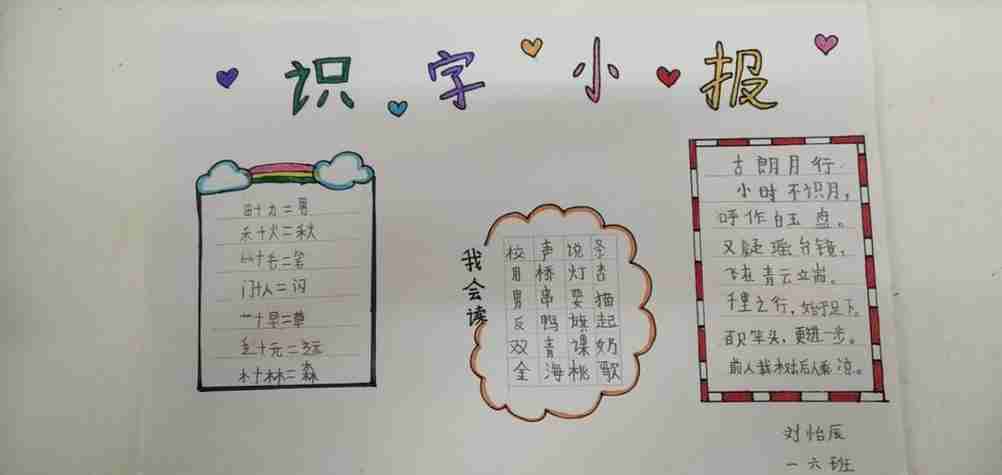 识字小报
田+力=男
禾+火=秋
竹+毛=笔
门+人=闪
艹+早=草
辶+元=远
木+林=森
我会读
校 声 说 条
月 桥 灯 杏
男 串 要 猫
反 鸭 旗 起
双 青 课 奶
全 海 桃 歌
古朗月行
小时不识月,
呼作白玉盘。
又疑瑶台镜,
飞在青云立端。
千里之行,始于足下。
百尺竿头,更进一步。
前人栽树后人乘凉。
刘怡辰
一六班